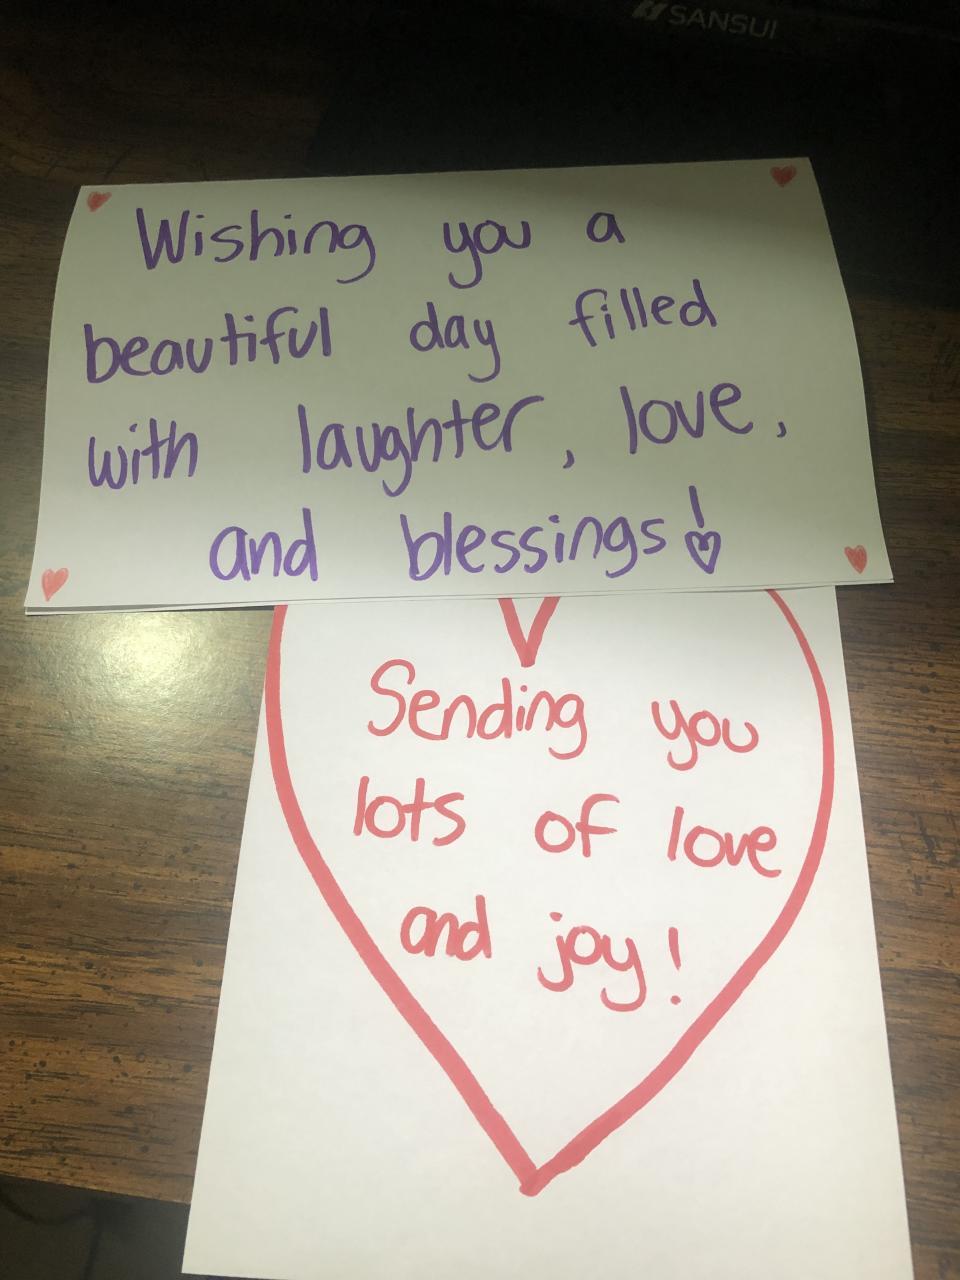 SANSUI
Wishing you a
beautiful day filled
with laughter, love,
and blessings!
Sending you
lots of love
and joy!